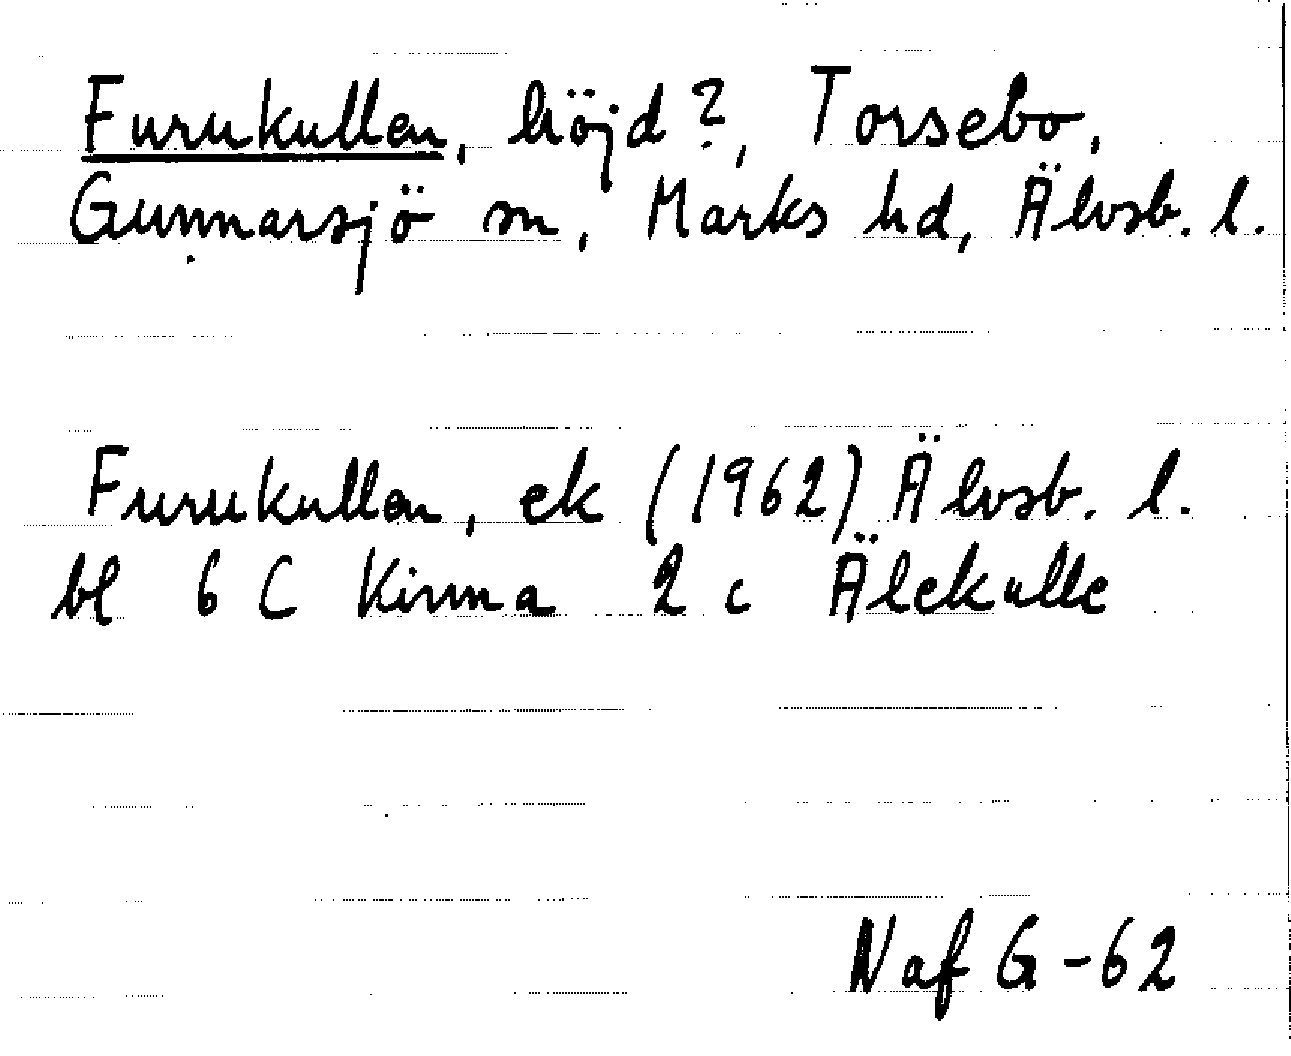 Furukullen, höjd?, Torsebo,
Gunnarsjö sn, Marks hd, Älvsb. l.
Furukullen, ek (1962) Älvsb. l.
bl 6 C Kinna 2 c Älekulle
Naf G-62